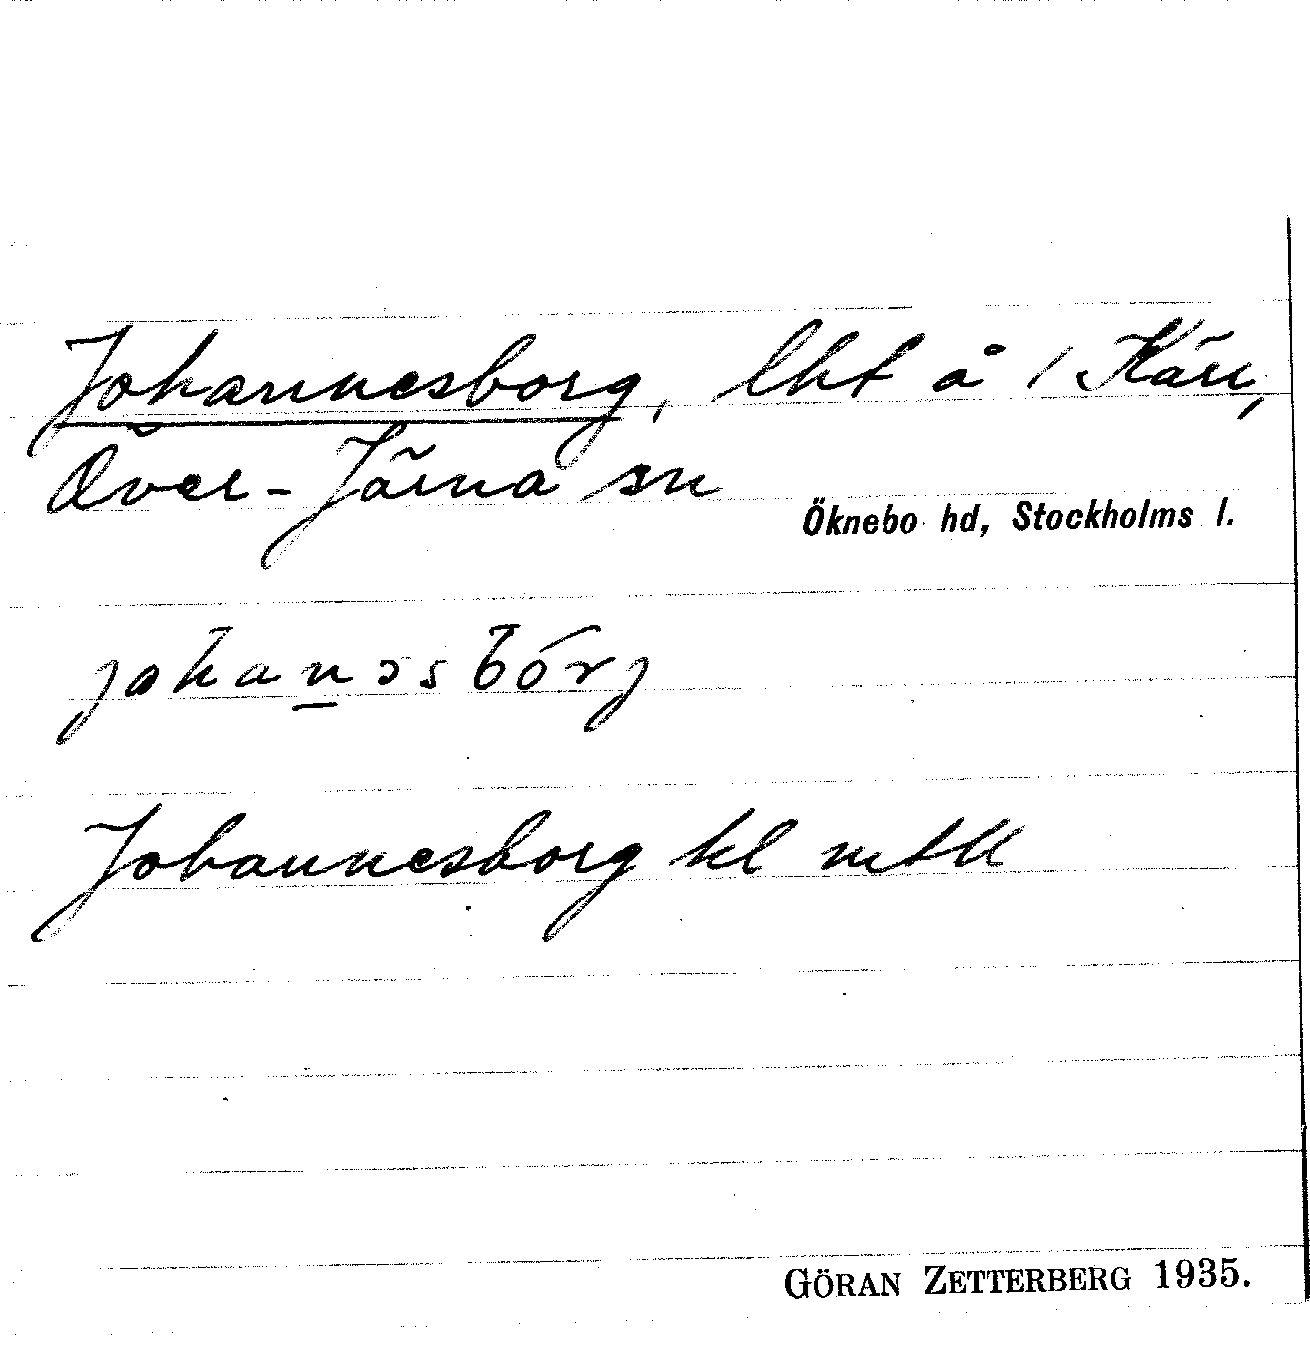 Johannesborg, lht å 1 Kärr,
Över-Järna sn
Öknebo hd, Stockholms l.
johanəsbórj
Johannesborg hl mtll
GÖRAN ZETTERBERG 1935.